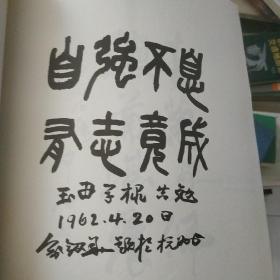 自強不息
有志竟成
玉再子棍共勉
1962.4.20日
题於杭州